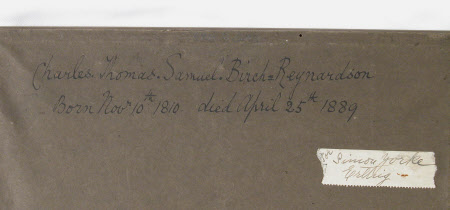 Charles. Thomas. Samuel. Birch=Reynardson
Born Novr 10th 1810. died April 25th 1889
Simon Yorke
Erthig